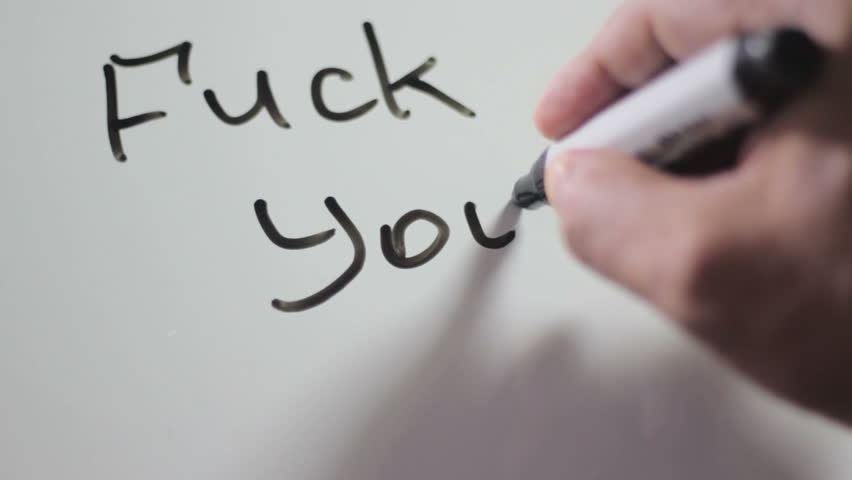 Fuck
you